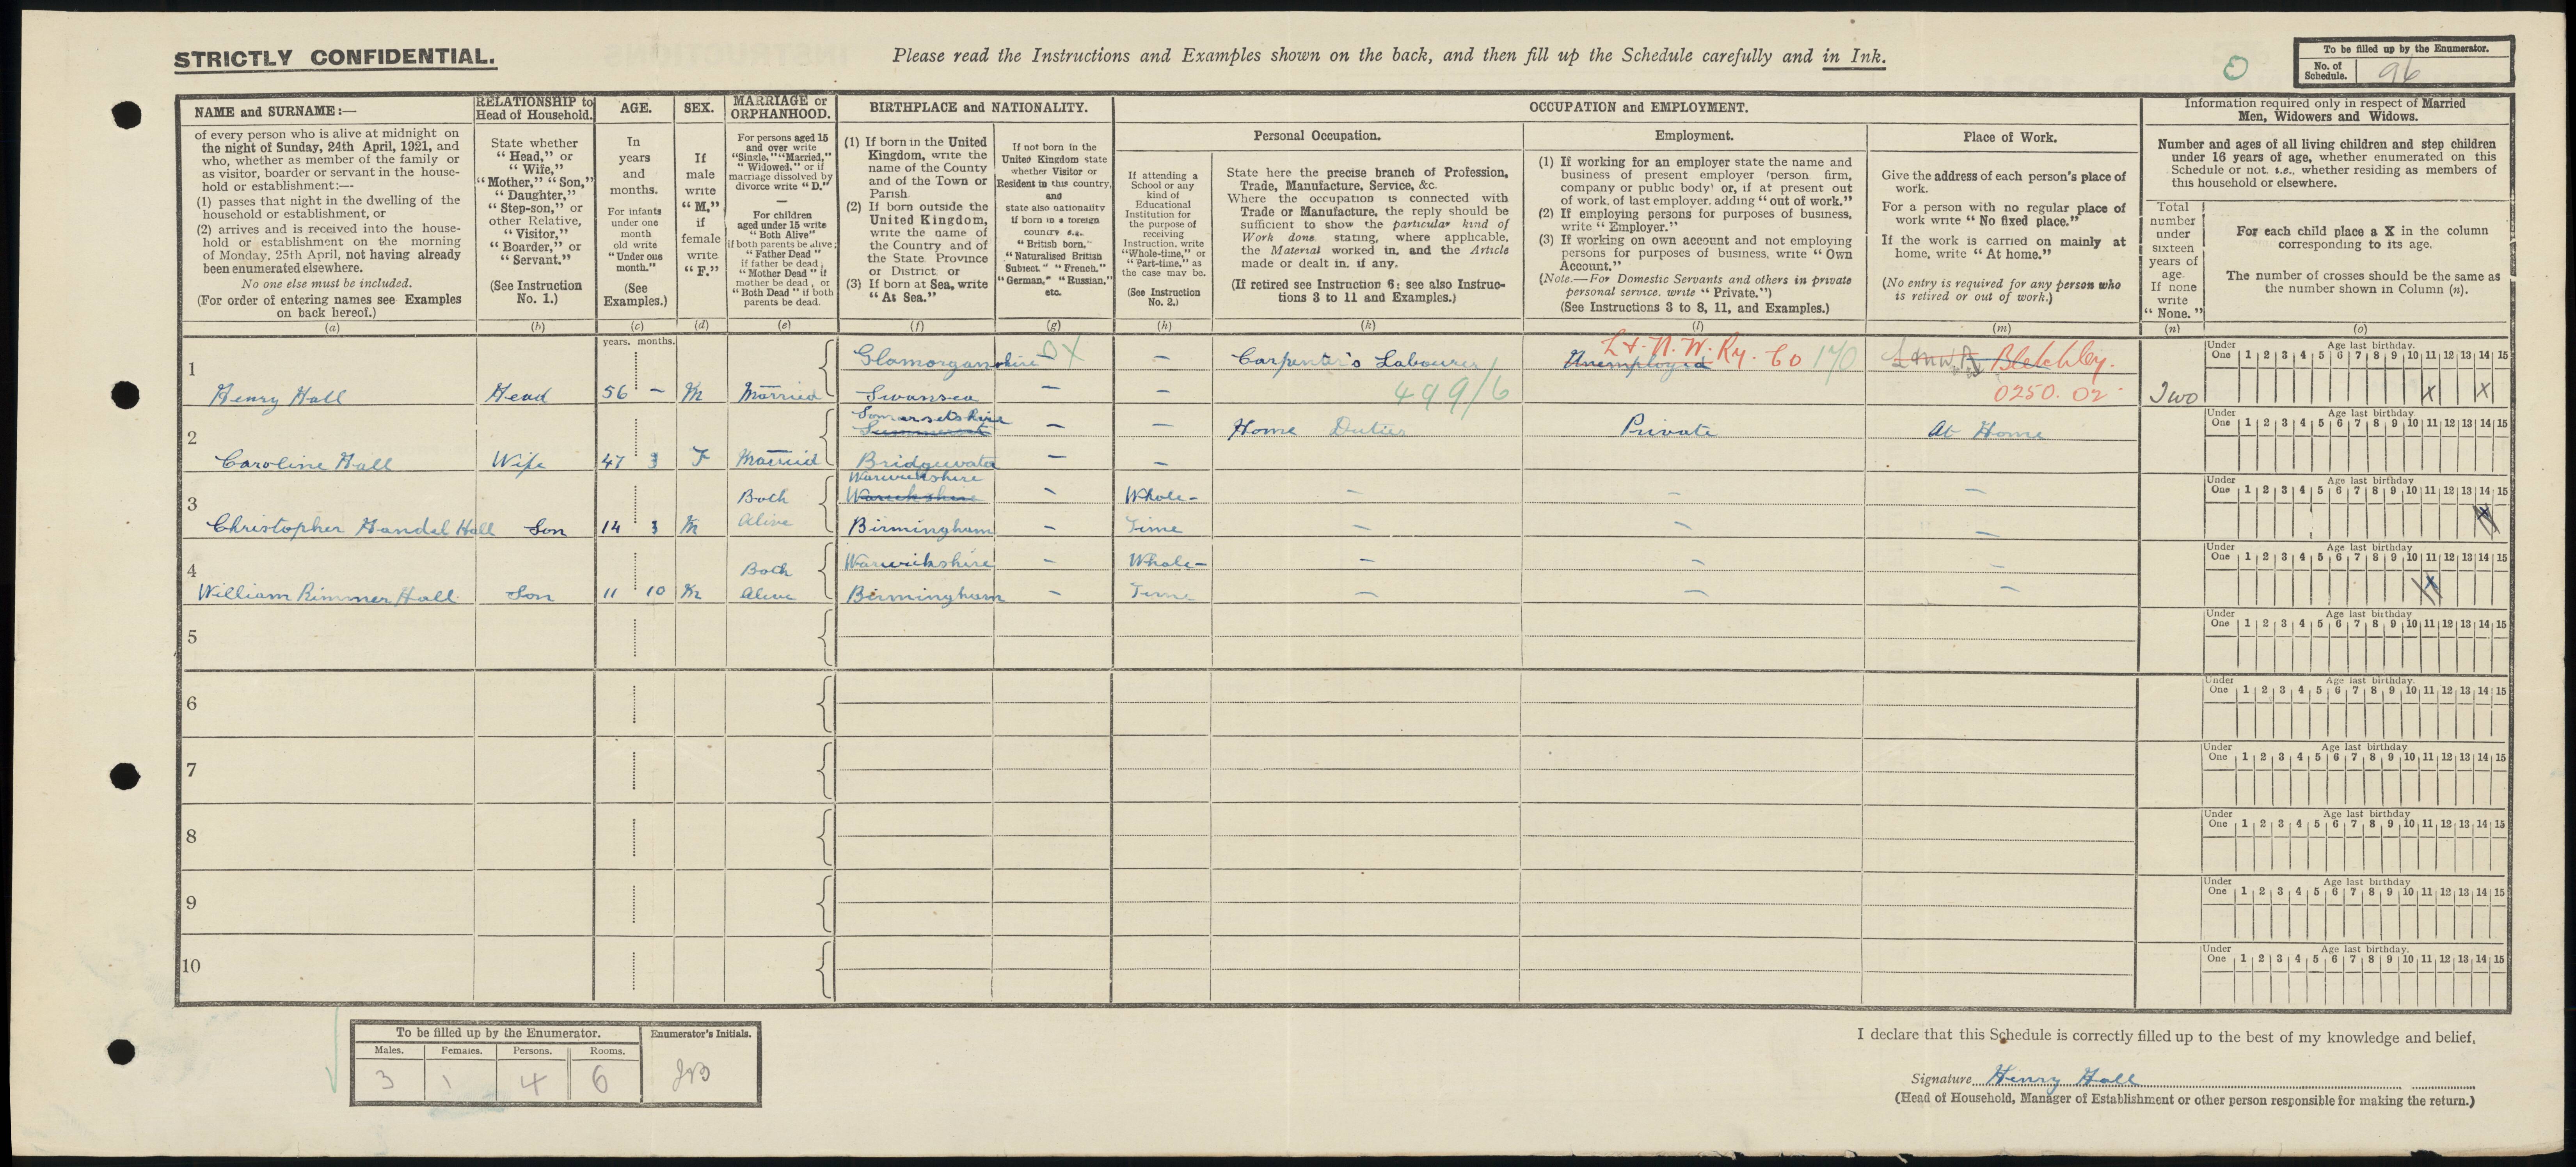 STRICTLY CONFIDENTIAL.
Please read the Instructions and Examples shown on the back, and then fill up the Schedule carefully and in Ink.
To be filled up by the Enumerator.
No. of Schedule. 96
NAME and SURNAME:—
of every person who is alive at midnight on
the night of Sunday, 24th April, 1921, and
who, whether as member of the family or
as visitor, boarder or servant in the house-
hold or establishment:—
(1) passes that night in the dwelling of the
household or establishment, or
(2) arrives and is received into the house-
hold or establishment on the morning
of Monday, 25th April, not having already
been enumerated elsewhere.
No one else must be included.
(For order of entering names see Examples
on back hereof.)
(a)
RELATIONSHIP to
Head of Household.
State whether
"Head," or
"Wife,"
"Mother," "Son,"
"Daughter,"
"Step-son," or
other Relative,
"Visitor,"
"Boarder," or
"Servant."
(See Instruction
No. 1.)
(b)
AGE.
In
years
and
months.
For infants
under one
month
old write
"Under one
month."
(See
Examples.)
(c)
SEX.
If
male
write
"M,"
if
female
write
"F."
(d)
MARRIAGE or
ORPHANHOOD.
For persons aged 15
and over write
"Single," "Married,"
"Widowed," or if
marriage dissolved by
divorce write "D."
—
For children
aged under 15 write
"Both Alive"
if both parents be alive;
"Father Dead"
if father be dead;
"Mother Dead" if
mother be dead; or
"Both Dead" if both
parents be dead.
(e)
BIRTHPLACE and NATIONALITY.
(1) If born in the United
Kingdom, write the
name of the County
and of the Town or
Parish.
(2) If born outside the
United Kingdom,
write the name of
the Country and of
the State, Province
or District or
(3) If born at Sea, write
"At Sea."
(f)
If not born in the
United Kingdom state
whether Visitor or
Resident in this country,
and
state also nationality
if born in a foreign
country e.g.
"British born,"
"Naturalised British
Subject," "French,"
"German," "Russian,"
etc.
(g)
OCCUPATION and EMPLOYMENT.
If attending a
School or any
kind of
Educational
Institution for
the purpose of
receiving
Instruction, write
"Whole-time," or
"Part-time," as
the case may be.
(See Instruction
No. 2.)
(h)
Personal Occupation.
State here the precise branch of Profession,
Trade, Manufacture, Service, &c.
Where the occupation is connected with
Trade or Manufacture, the reply should be
sufficient to show the particular kind of
Work done, stating, where applicable,
the Material worked in, and the Article
made or dealt in, if any.
(If retired see Instruction 6; see also Instruc-
tions 3 to 11 and Examples.)
(k)
Employment.
(1) If working for an employer state the name and
business of present employer (person, firm,
company or public body) or, if at present out
of work, of last employer, adding "out of work."
(2) If employing persons for purposes of business,
write "Employer."
(3) If working on own account and not employing
persons for purposes of business, write "Own
Account."
(Note.—For Domestic Servants and others in private
personal service, write "Private.")
(See Instructions 3 to 8, 11, and Examples.)
(l)
Place of Work.
Give the address of each person's place of
work.
For a person with no regular place of
work write "No fixed place."
If the work is carried on mainly at
home, write "At home."
(No entry is required for any person who
is retired or out of work.)
(m)
Information required only in respect of Married
Men, Widowers and Widows.
Number and ages of all living children and step children
under 16 years of age, whether enumerated on this
Schedule or not, i.e., whether residing as members of
this household or elsewhere.
Total
number
under
sixteen
years of
age.
If none
write
"None."
(n)
For each child place a X in the column
corresponding to its age.
The number of crosses should be the same as
the number shown in Column (n).
(o)
years. months.
1 Henry Hall Head 56 — M Married Glamorganshire Swansea — — Carpenter's Labourer 499/6 Unemployed L. & N. W. Ry. Co 170 Bletchley. 0250.02 Two
Under One 1 2 3 4 5 6 7 8 9 10 11 12 13 14 15 Age last birthday. X X
2 Caroline Hall Wife 47 3 F Married Somersetshire Summerset Bridgwater — — Home Duties Private At Home
Under One 1 2 3 4 5 6 7 8 9 10 11 12 13 14 15 Age last birthday.
3 Christopher Handel Hall Son 14 3 M Both Alive Warwickshire Warickshire Birmingham — Whole-Time — — —
Under One 1 2 3 4 5 6 7 8 9 10 11 12 13 14 15 Age last birthday. X
4 William Rimmer Hall Son 11 10 M Both Alive Warwickshire Birmingham — Whole-Time — — —
Under One 1 2 3 4 5 6 7 8 9 10 11 12 13 14 15 Age last birthday X
5
Under One 1 2 3 4 5 6 7 8 9 10 11 12 13 14 15 Age last birthday
6
Under One 1 2 3 4 5 6 7 8 9 10 11 12 13 14 15 Age last birthday.
7
Under One 1 2 3 4 5 6 7 8 9 10 11 12 13 14 15 Age last birthday
8
Under One 1 2 3 4 5 6 7 8 9 10 11 12 13 14 15 Age last birthday.
9
Under One 1 2 3 4 5 6 7 8 9 10 11 12 13 14 15 Age last birthday
10
Under One 1 2 3 4 5 6 7 8 9 10 11 12 13 14 15 Age last birthday.
To be filled up by the Enumerator.
Enumerator's Initials.
Males. Females. Persons. Rooms.
3 1 4 6
I declare that this Schedule is correctly filled up to the best of my knowledge and belief,
Signature Henry Hall
(Head of Household, Manager of Establishment or other person responsible for making the return.)